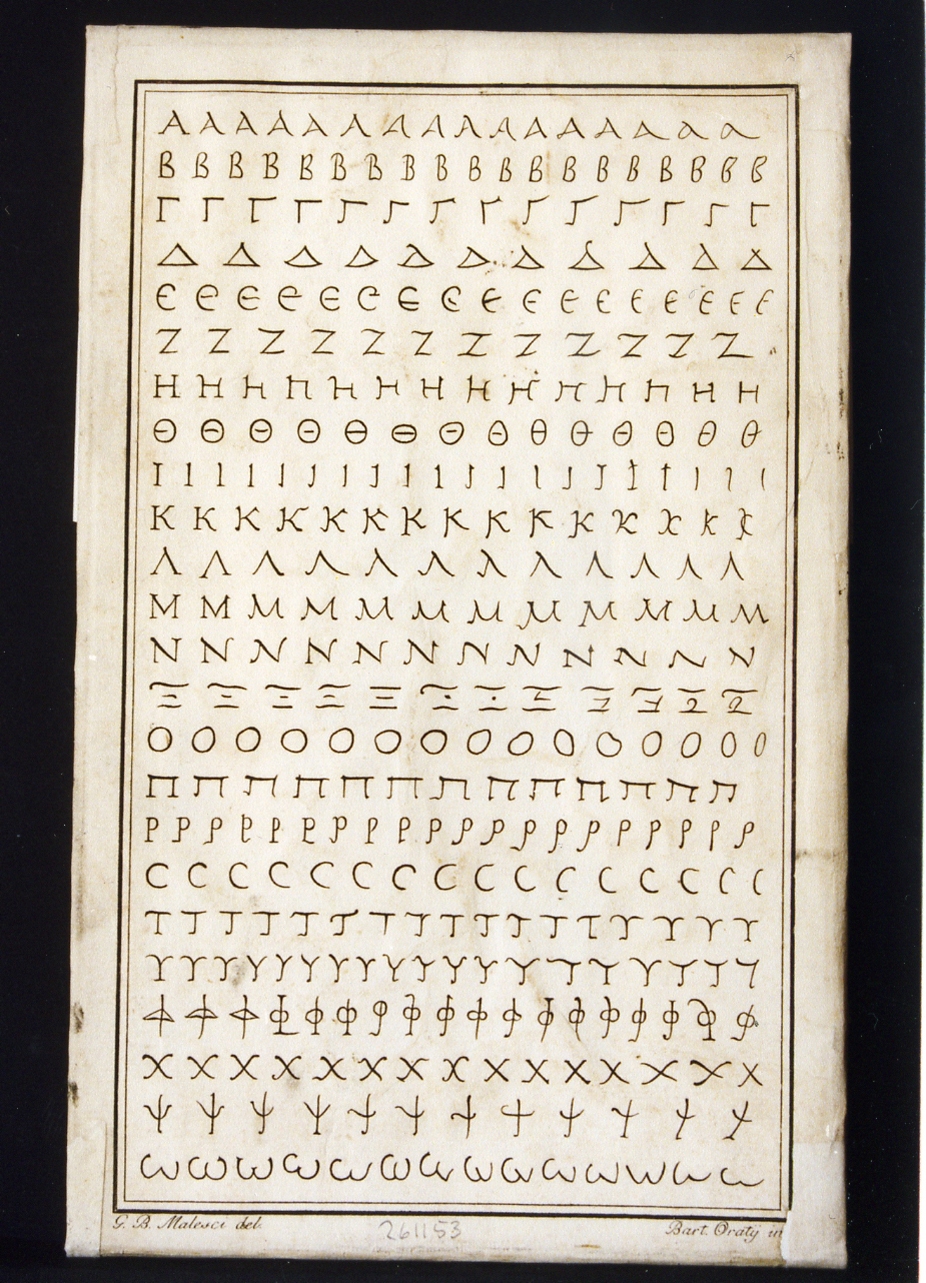 Α Α Α Α Α Α Α Α Α Α Α Α Α Α Α Α
Β Β Β Β Β Β Β Β Β Β Β Β Β Β Β Β Β Β Β
Γ Γ Γ Γ Γ Γ Γ Γ Γ Γ Γ Γ Γ Γ
Δ Δ Δ Δ Δ Δ Δ Δ Δ Δ Δ
Є Є Є Є Є Є Є Є Є Є Є Є Є Є Є Є Є
Ζ Ζ Ζ Ζ Ζ Ζ Ζ Ζ Ζ Ζ Ζ Ζ
Η Η Η Η Η Η Η Η Η Η Η Η Η Η
Θ Θ Θ Θ Θ Θ Θ Θ Θ Θ Θ Θ Θ Θ
Ι Ι Ι Ι Ι Ι Ι Ι Ι Ι Ι Ι Ι Ι Ι Ι Ι Ι Ι Ι
Κ Κ Κ Κ Κ Κ Κ Κ Κ Κ Κ Κ Κ Κ Κ
Λ Λ Λ Λ Λ Λ Λ Λ Λ Λ Λ Λ
Μ Μ Μ Μ Μ Μ Μ Μ Μ Μ Μ Μ
Ν Ν Ν Ν Ν Ν Ν Ν Ν Ν Ν Ν
Ξ Ξ Ξ Ξ Ξ Ξ Ξ Ξ Ξ Ξ Ξ Ξ
Ο Ο Ο Ο Ο Ο Ο Ο Ο Ο Ο Ο Ο Ο Ο
Π Π Π Π Π Π Π Π Π Π Π Π Π
Ρ Ρ Ρ Ρ Ρ Ρ Ρ Ρ Ρ Ρ Ρ Ρ Ρ Ρ Ρ Ρ Ρ Ρ Ρ Ρ
Ϲ Ϲ Ϲ Ϲ Ϲ Ϲ Ϲ Ϲ Ϲ Ϲ Ϲ Ϲ Ϲ Ϲ Ϲ Ϲ
Τ Τ Τ Τ Τ Τ Τ Τ Τ Τ Τ Τ Τ Τ Τ Τ Τ
Υ Υ Υ Υ Υ Υ Υ Υ Υ Υ Υ Υ Υ Υ Υ Υ Υ Υ Υ
Φ Φ Φ Φ Φ Φ Φ Φ Φ Φ Φ Φ Φ Φ Φ Φ Φ Φ
Χ Χ Χ Χ Χ Χ Χ Χ Χ Χ Χ Χ Χ Χ Χ
Ψ Ψ Ψ Ψ Ψ Ψ Ψ Ψ Ψ Ψ Ψ Ψ
ω ω ω ω ω ω ω ω ω ω ω ω ω ω
G. B. Malesci del. 261153 Bart. Oratÿ in